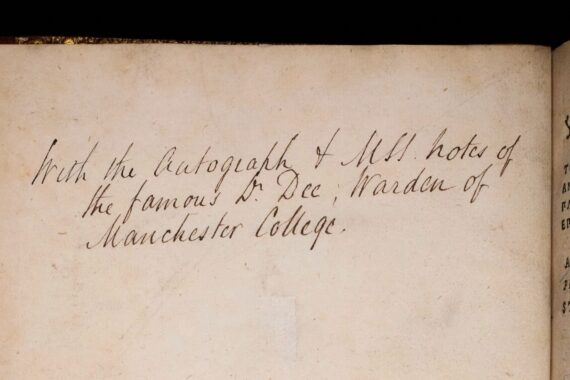 With the Autograph & MSS. notes of
the famous Dr. Dee; Warden of
Manchester College.